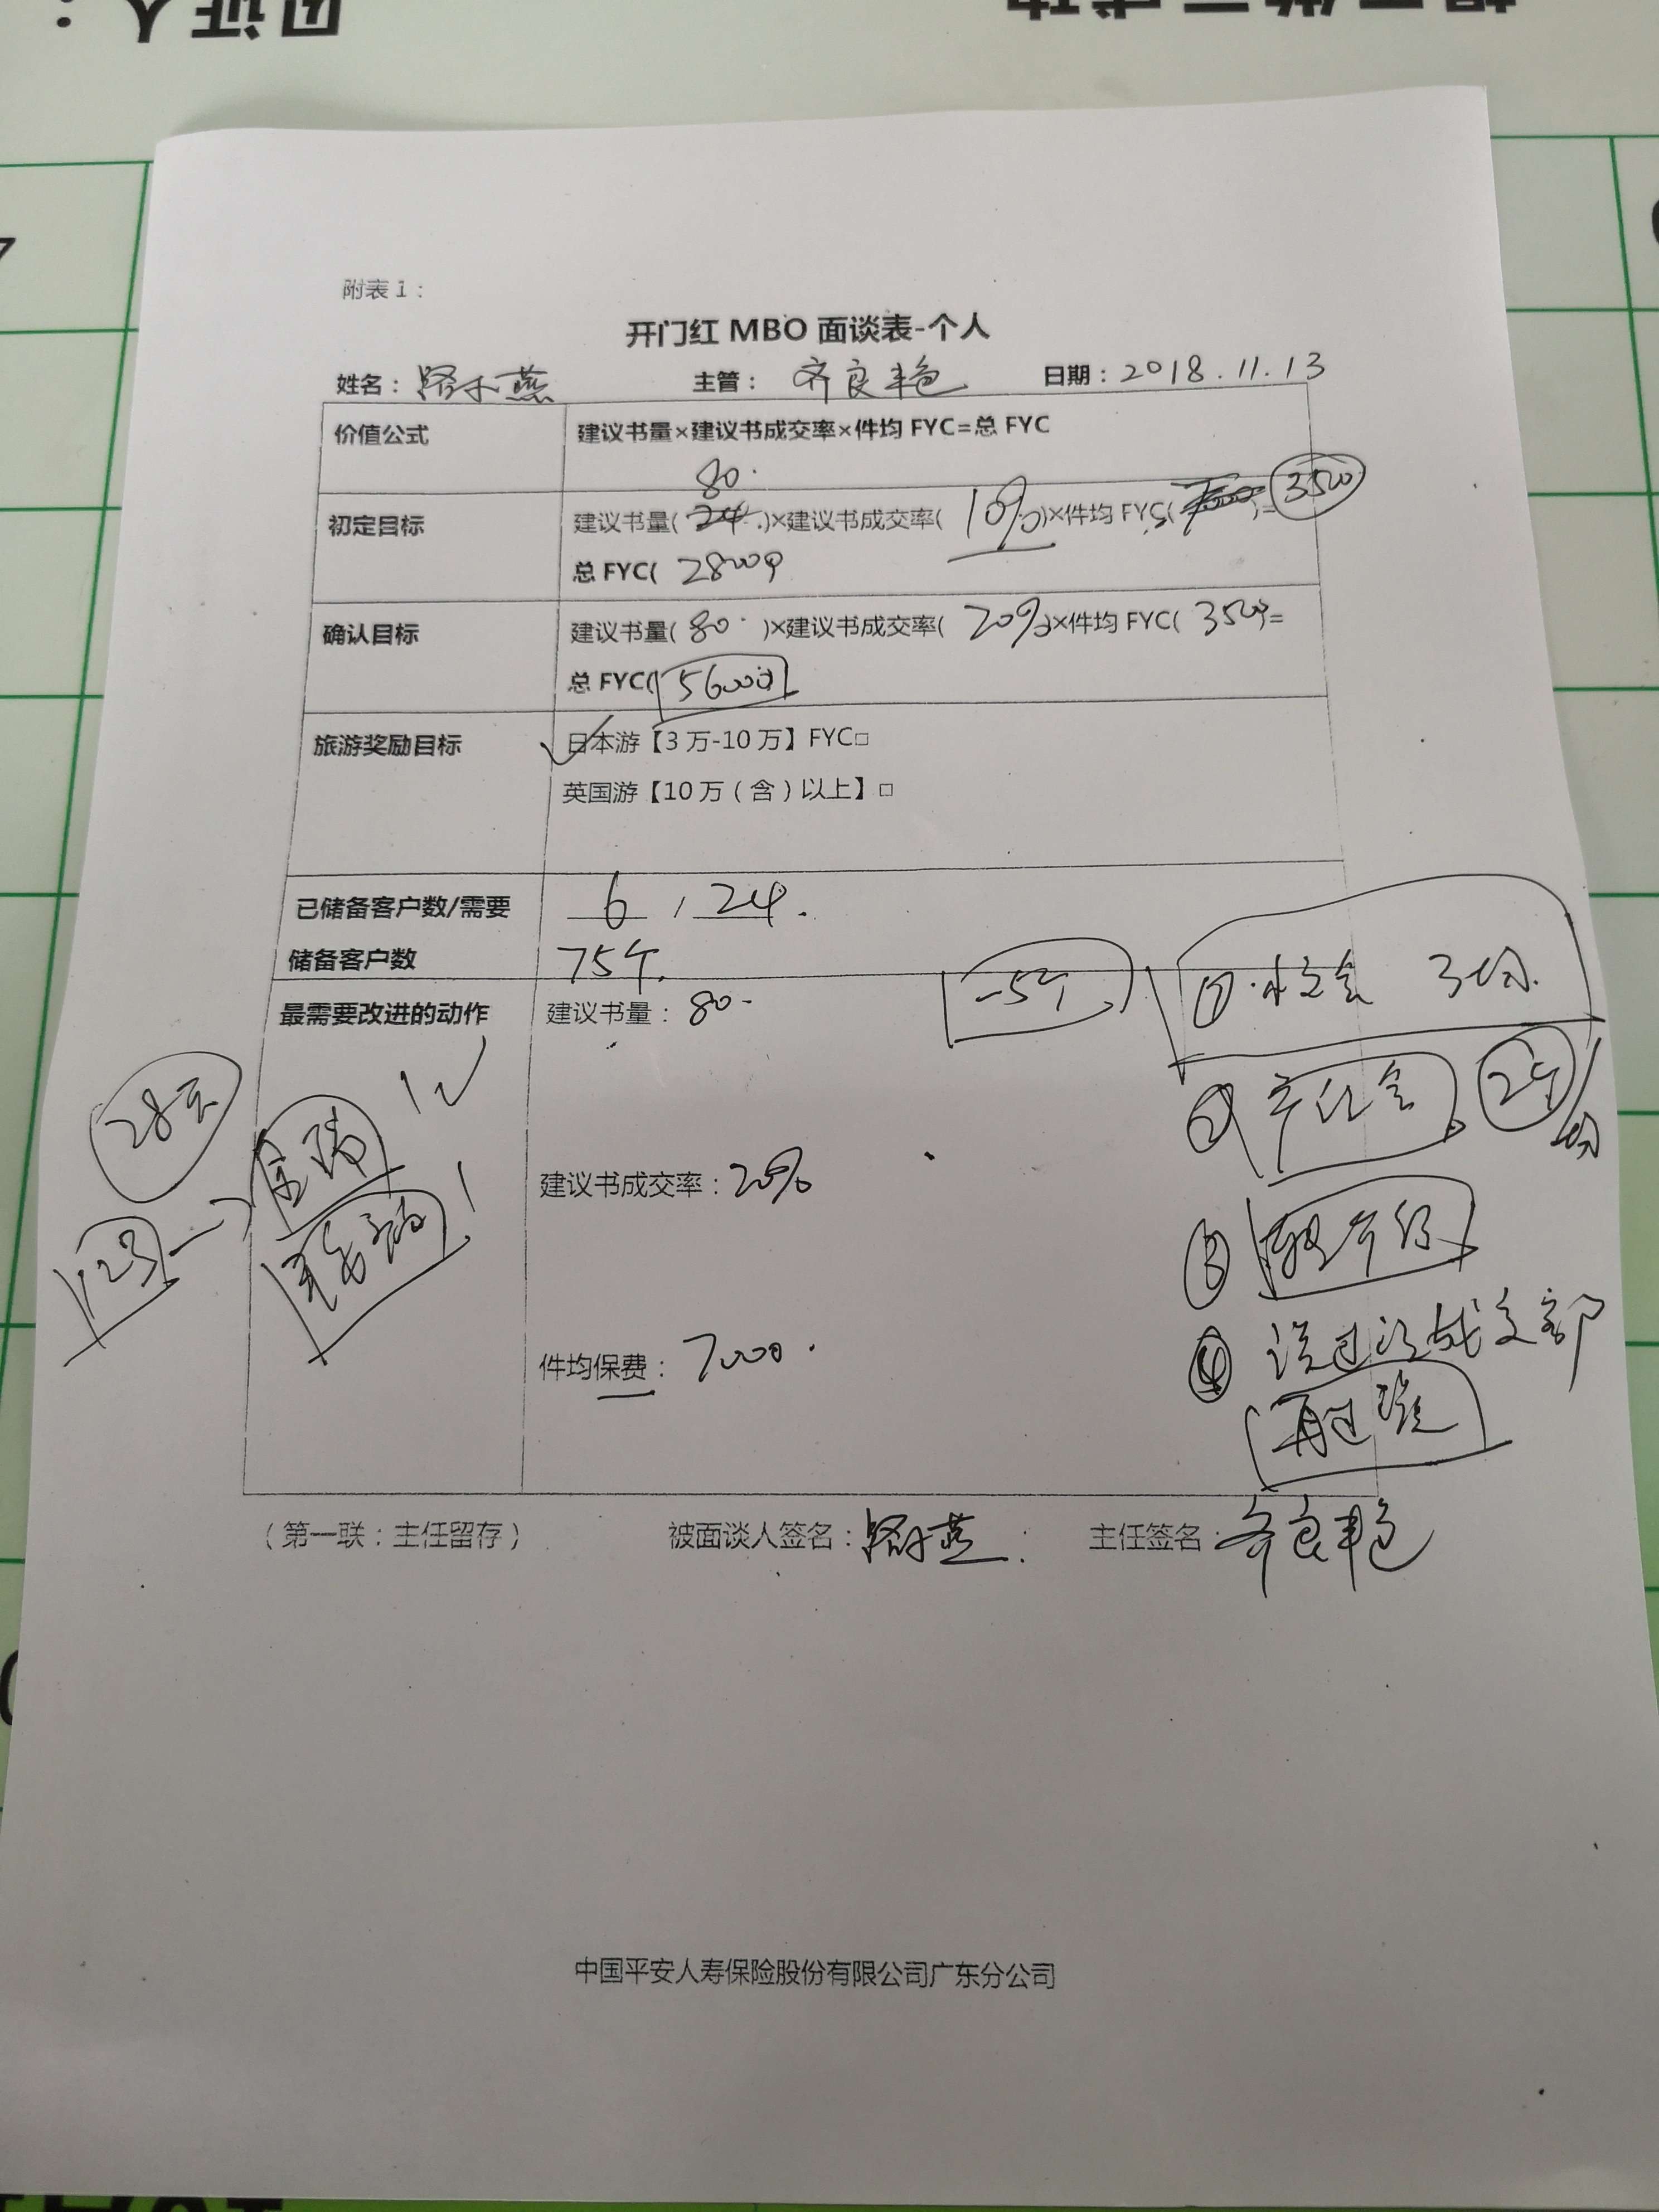 见证人：
附表1：
开门红 MBO 面谈表-个人
姓名：骆小燕 主管：齐良艳 日期：2018.11.13
价值公式 建议书量×建议书成交率×件均 FYC=总 FYC
80.
初定目标 建议书量( 24 )×建议书成交率( 10% )×件均 FYC( 7000 )= 3500
总 FYC( 28000
确认目标 建议书量( 80 )×建议书成交率( 20% )×件均 FYC( 3500 )=
总 FYC( 56000
旅游奖励目标 日本游【3 万-10 万】FYC□
英国游【10 万（含）以上】□
已储备客户数/需要 6 / 24.
储备客户数 75个.
-5个
① 会 3场.
最需要改进的动作 建议书量：80
② 产说会 2个/场
28天
建议书成交率：20%
③
123→
④ 说过没成交客户
件均保费：7000.
再过
（第一联：主任留存） 被面谈人签名：骆小燕 主任签名：齐良艳
中国平安人寿保险股份有限公司广东分公司